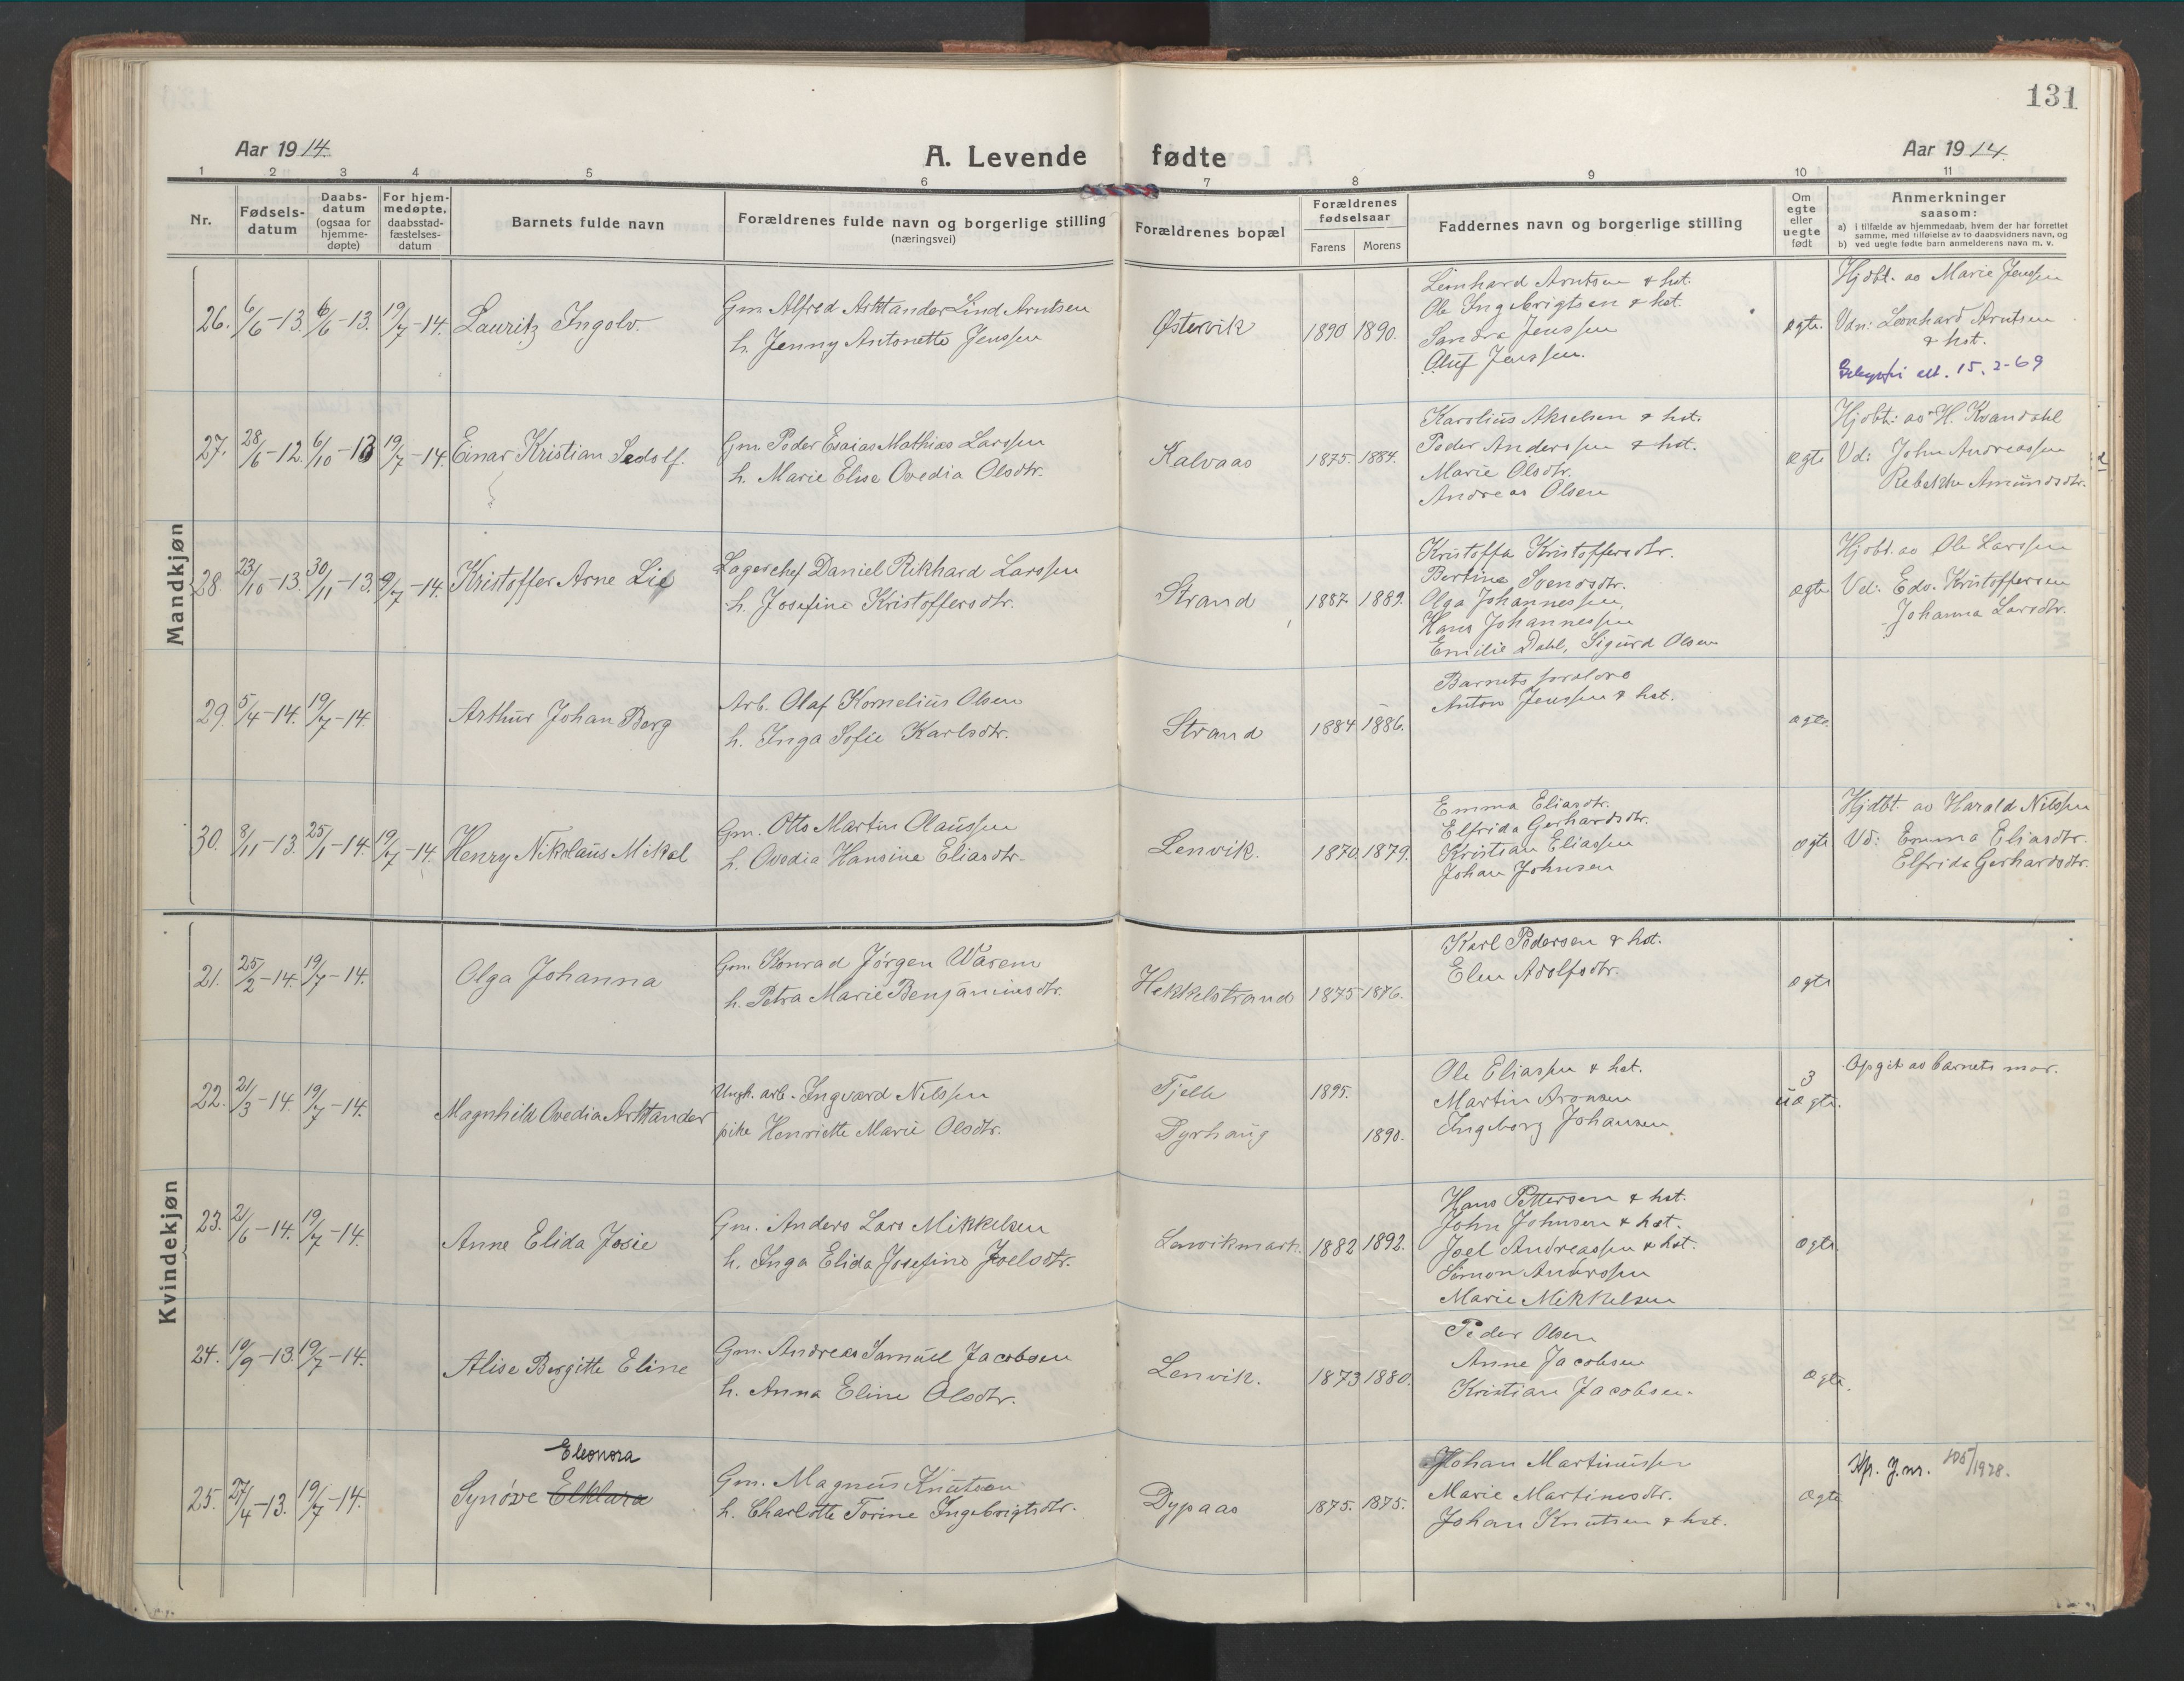 131
Aar 1914.
A. Levende fødte
Aar 1914.
1 2 3 4 5 6 7 8 9 10 11
Nr.
Fødsels-
datum
Daabs-
datum
(ogsaa for
hjemme-
døpte)
For hjem-
medøpte.
daabsstad-
fæstelses-
datum
Barnets fulde navn
Forældrenes fulde navn og borgerlige stilling
(næringsvei)
Forældrenes bopæl
Forældrenes
fødselsaar
Farens Morens
Faddernes navn og borgerlige stilling
Om
egte
eller
uegte
født
Anmerkninger
saasom:
a) i tilfælde av hjemmedaab, hvem der har forrettet
samme, med tilføielse av to daabsvidners navn, og
b) ved uegte fødte barn anmelderens navn m. v.
Mandkjøn
26. 6/6-13. 6/6-13. 19/7-14. Lauritz Ingolv.
Gm. Alfred Arktander Lind Arntsen
h. Jenny Antonette Jenssen
Østervik 1890 1890.
Leonhard Arntsen & hst.
Ole Ingebrigtsen & hst.
Sandra Jenssen
Oluf Jenssen.
ægte.
Hjdbt. av Marie Jenssen
Vdn: Leonhard Arntsen
& hst.
att. 15.2-69
27. 28/6-12. 6/10-13 19/7-14. Einar Kristian Sedolf.
Gm. Peder Esaias Mathias Larssen
h. Marie Elise Ovedia Olsdtr.
Kalvaas 1875. 1884.
Karolius Akselsen & hst.
Peder Anderssen & hst.
Marie Olsdtr.
Andreas Olsen
ægte
Hjdbt: av H. Kvandahl
Vd: John Andreassen
Rebekka Amundsdtr.
28. 23/10-13. 30/11-13. 9/7-14. Kristoffer Arne Lie
Lagerchef Daniel Rikhard Larssen
h. Josefine Kristoffersdtr.
Strand 1887 1889.
Kristoffa Kristoffersdtr.
Bertine Svendsdtr.
Olga Johannessen,
Hans Johannessen
Emilie Dahl, Sigurd Olsen
ægte
Hjdbt. av Ole Larssen
Vd: Edv. Kristoffersen
Johanna Larsdtr.
29. 5/4-14. 19/7-14 Arthur Johan Berg
Arb. Olaf Kornelius Olsen
h. Inga Sofie Karlsdtr.
Strand 1884 1886.
Barnets forældre
Anton Jenssen & hst.
ægte.
30. 8/11-13. 25/1-14. 19/7-14. Henry Nikolaus Mikal
Gm. Otto Martin Olaussen
h. Ovedia Hansine Eliasdtr.
Lenvik. 1870. 1879.
Emma Eliasdtr.
Elfrida Gerhardsdtr.
Kristian Eliassen
Johan Johnsen
ægte
Hjdbt. av Harald Nilssen
Vd: Emma Eliasdtr.
Elfrida Gerhardsdtr.
Kvindekjøn
21. 25/2-14. 19/7-14. Olga Johanna
Gm. Konrad Jørgen Wasem
h. Petra Marie Benjaminsdtr.
Hekkelstrand 1875 1876.
Karl Pedersen & hst.
Elen Adolfsdtr.
ægte
22. 21/3-14. 19/7-14. Magnhild Ovedia Arktander
Ungk. arb. Ingvard Nilssen
pike Henriette Marie Olsdtr.
Fjelle 1895.
Dyrhaug 1890.
Ole Eliassen & hst.
Martin Aronsen
Ingeborg Johansen
3
uægte.
Opgit av barnets mor.
23. 21/6-14. 19/7-14. Anne Elida Josie
Gm. Anders Lars Mikkelsen
h. Inga Elida Josefine Joelsdtr.
Lenvikmark. 1882 1892.
Hans Pettersen & hst.
John Johnsen & hst.
Joel Andreassen & hst.
Simon Anderssen
Marie Mikkelsen
ægte.
24. 19/9-13. 19/7-14. Alise Bergitte Eline
Gm. Andreas Samuel Jacobsen
h. Anna Eline Olsdtr.
Lenvik. 1873 1880.
Peder Olsen
Anne Jacobsen
Kristian Jacobsen.
ægte.
Eleonora
25. 27/4-13. 19/7-14. Synøve Elklara
Gm. Magnus Knutsen
h. Charlotte Torine Ingebrigtsdtr.
Dypaas 1875. 1875.
Johan Martinussen
Marie Martinusdtr.
Johan Knutsen & hst.
ægte
Kp. J.nr. 105/1928.